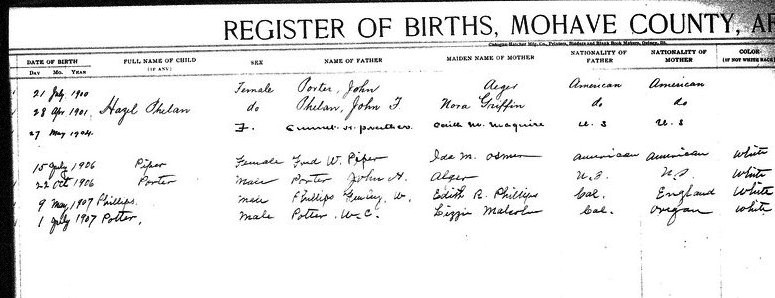 REGISTER OF BIRTHS, MOHAVE COUNTY, AR
Cologne-Hatcher Mfg. Co., Printers, Binders and Blank Book Makers, Quincy, Ill.
DATE OF BIRTH FULL NAME OF CHILD SEX NAME OF FATHER MAIDEN NAME OF MOTHER NATIONALITY OF FATHER NATIONALITY OF MOTHER COLOR
DAY MO. YEAR (IF ANY) (IF NOT WHITE RACE)
21 July 1900 Female Porter, John American American
28 Apr 1901 Hazel Phelan do Phelan, John F Nora Griffin do do
27 May 1904 F. Edith M. Maguire U. S U. S
15 July 1906 Piper Female Fred W. Piper Ida M. Osmer American American White
22 Oct 1906 Porter Male Porter John H. Alger U.S. U.S. White
9 May 1907 Phillips. Male Phillips W. Edith R. Phillips Cal. England White
1 July 1907 Potter, Male Potter W. C. Lizzie Malcolm Cal. Oregon White